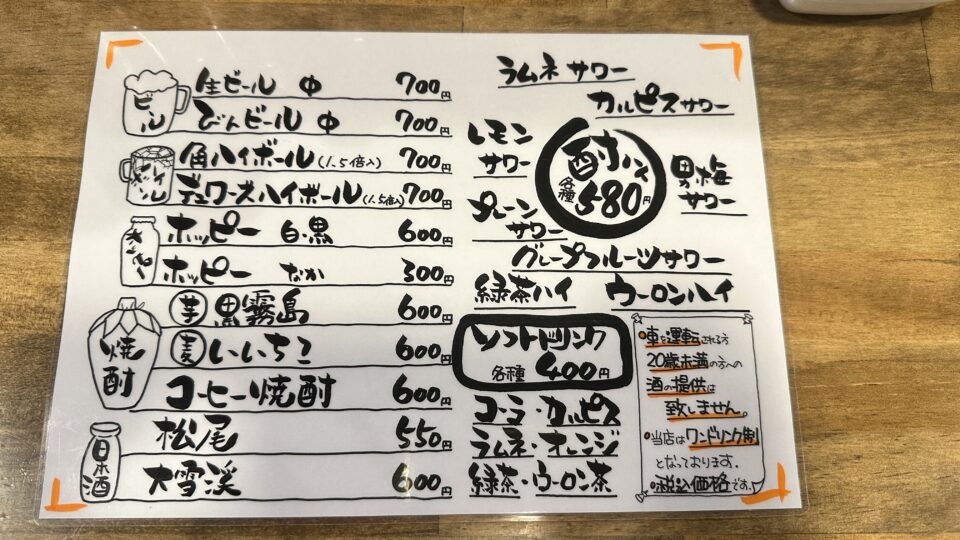 ビール
生ビール 中 700円
びんビール 中 700円
角ハイボール(1.5倍入) 700円
デュワーズハイボール(1.5倍入) 700円
ホッピー
ホッピー 白・黒 600円
ホッピー なか 300円
焼酎
芋 黒霧島 600円
麦 いいちこ 600円
コーヒー焼酎 600円
日本酒
松尾 550円
大雪渓 600円
ラムネサワー
カルピスサワー
レモン
サワー
酎ハイ
各種 580円
男梅
サワー
プレーン
サワー
グレープフルーツサワー
緑茶ハイ ウーロンハイ
ソフトドリンク
各種 400円
コーラ・カルピス
ラムネ・オレンジ
緑茶・ウーロン茶
・車を運転される方
20歳未満の方への
酒の提供は
致しません。
・当店はワンドリンク制
となっております。
・税込価格です。